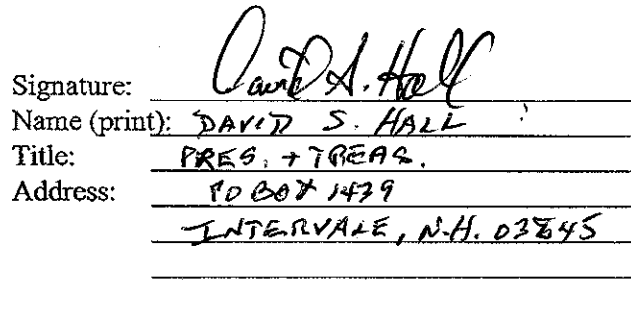 Signature: David S. Hall
Name (print): DAVID S. HALL
Title: PRES. + TREAS.
Address: PO BOX 1479
INTERVALE, N.H. 03845